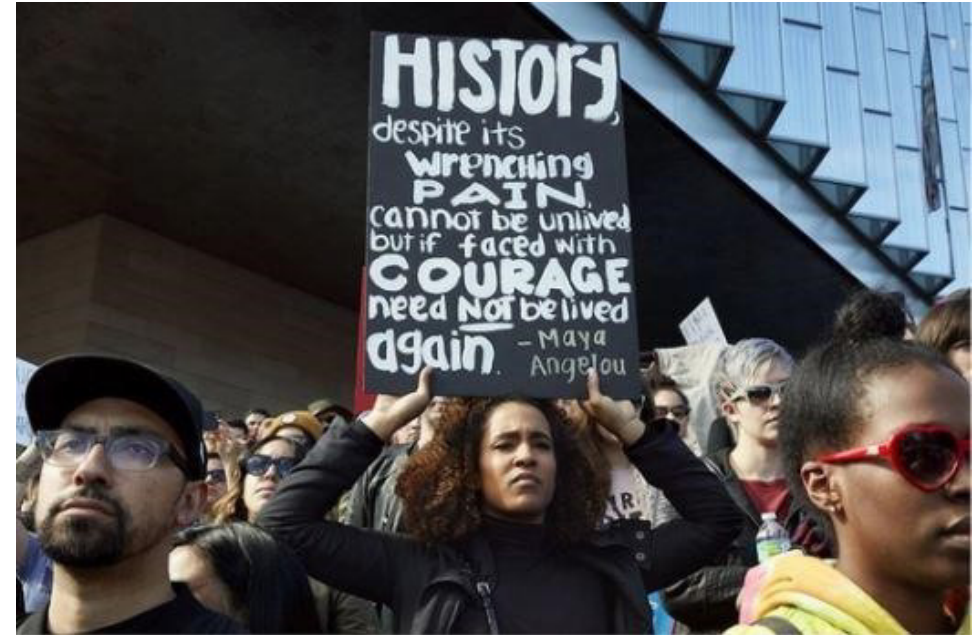 HISTORY,
despite its
wrenching
PAIN,
cannot be unlived
but if faced with
COURAGE
need NOT be lived
again. - Maya
Angelou